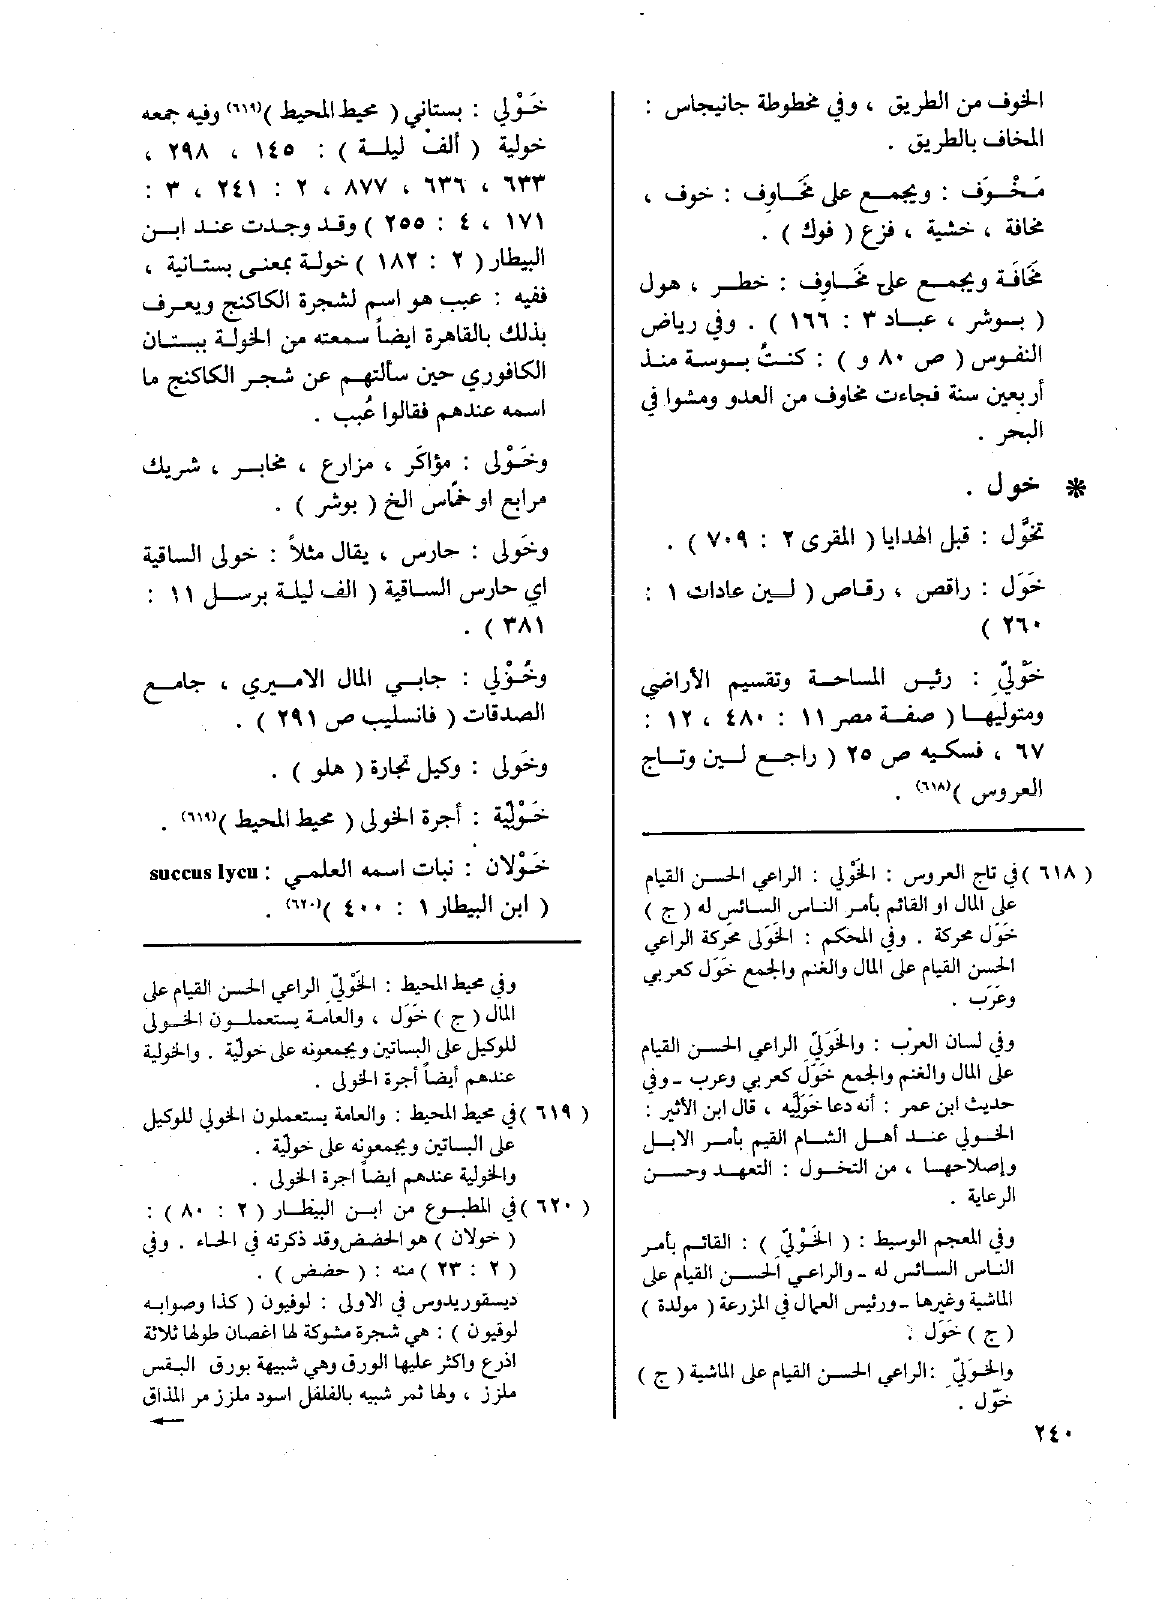 الخوف من الطريق ، وفي مخطوطة جانيجاس :
المخاف بالطريق .
مَخْوَف : ويجمع على مَخَاوِف : خوف ،
مخافة ، خشية ، فزع ( فوك ) .
مَخَافَة ويجمع على مَخَاوِف : خطر ، هول
( بوشر ، عباد ٣ : ١٦٦ ) . وفي رياض
النفوس ( ص ٨٠ و ) : كنتُ بوسة منذ
أربعين سنة فجاءت مخاوف من العدو ومشوا في
البحر .
* خول .
تخوَّل : قبل الهدايا ( المقرى ٢ : ٧٠٩ ) .
خَوَل : راقص ، رقاص ( لين عادات ١ :
٢٦٠ )
خَوْليّ : رئيس المساحة وتقسيم الأراضي
ومتوليها ( صفة مصر ١١ : ٤٨٠ ، ١٢ :
٦٧ ، فسكيه ص ٢٥ ( راجع لين وتاج
العروس )(٦١٨) .
( ٦١٨ ) في تاج العروس : الخَوْلي : الراعي الحسن القيام
على المال او القائم بأمر الناس السائس له ( ج )
خَوَل محركة . وفي المحكم : الخَوَلى محَركة الراعي
الحسن القيام على المال والغنم والجمع خَوَل كعربي
وعَرَب .
وفي لسان العرب : والخَوَليّ الراعي الحسن القيام
على المال والغنم والجمع خَوَل كعربي وعرب ـ وفي
حديث ابن عمر : أنه دعا خَوَليَّه ، قال ابن الأثير :
الخولي عند أهل الشام القيم بأمر الابل
وإصلاحها ، من التخول : التعهد وحسن
الرعاية .
وفي المعجم الوسيط : ( الخَوْليّ ) : القائم بأمر
الناس السائس له ـ والراعي الحسن القيام على
الماشية وغيرها ـ ورئيس العمال في المزرعة ( مولدة )
( ج ) خَوَل .
والخَوَليّ : الراعي الحسن القيام على الماشية ( ج )
خَوَل .
خَوْلي : بستاني ( محيط المحيط )(٦١٩) وفيه جمعه
خولية ( ألف ليلة ) : ١٤٥ ، ٢٩٨ ،
٦٣٣ ، ٦٣٦ ، ٨٧٧ ، ٢ : ٢٤١ ، ٣ :
١٧١ ، ٤ : ٢٥٥ ) وقد وجدت عند ابن
البيطار ( ٢ : ١٨٢ ) خولة بمعنى بستانية ،
ففيه : عبب هو اسم لشجرة الكاكنج ويعرف
بذلك بالقاهرة ايضاً سمعته من الخولة ببستان
الكافوري حين سألتهم عن شجر الكاكنج ما
اسمه عندهم فقالوا عُبب .
وخَوْلى : مؤاكَر ، مزارع ، مخابر ، شريك
مرابع او خمّاس الخ ( بوشر ) .
وخَولى : حارس ، يقال مثلاً : خولى الساقية
اي حارس الساقية ( الف ليلة برسل ١١ :
٣٨١ ) .
وخُوْلي : جابي المال الاميري ، جامع
الصدقات ( فانسليب ص ٢٩١ ) .
وخَولى : وكيل تجارة ( هلو ) .
خَوْلِيّة : أجرة الخولى ( محيط المحيط )(٦١٩) .
خَوْلان : نبات اسمه العلمي : succus lycu
( ابن البيطار ١ : ٤٠٠ )(٦٢٠) .
وفي محيط المحيط : الخَوْليّ الراعي الحسن القيام على
المال ( ج ) خَوَل ، والعامة يستعملون الخولى
للوكيل على البساتين ويجمعونه على خوليّة . والخولية
عندهم أيضاً أجرة الخولى .
( ٦١٩ ) في محيط المحيط : والعامة يستعملون الخولي للوكيل
على البساتين ويجمعونه على خوليّة .
والخولية عندهم ايضاً اجرة الخولى .
( ٦٢٠ ) في المطبوع من ابن البيطار ( ٢ : ٨٠ ) :
( خولان ) هو الحضض وقد ذكرته في الحاء . وفي
( ٢ : ٢٣ ) منه : ( حضض ) .
ديسقوريدوس في الاولى : لوفيون ( كذا وصوابه
لوقيون ) : هي شجرة مشوكة لها اغصان طولها ثلاثة
اذرع واكثر عليها الورق وهي شبيهة بورق البقس
ملزز ، ولها ثمر شبيه بالفلفل اسود ملزز مر المذاق
٢٤٠